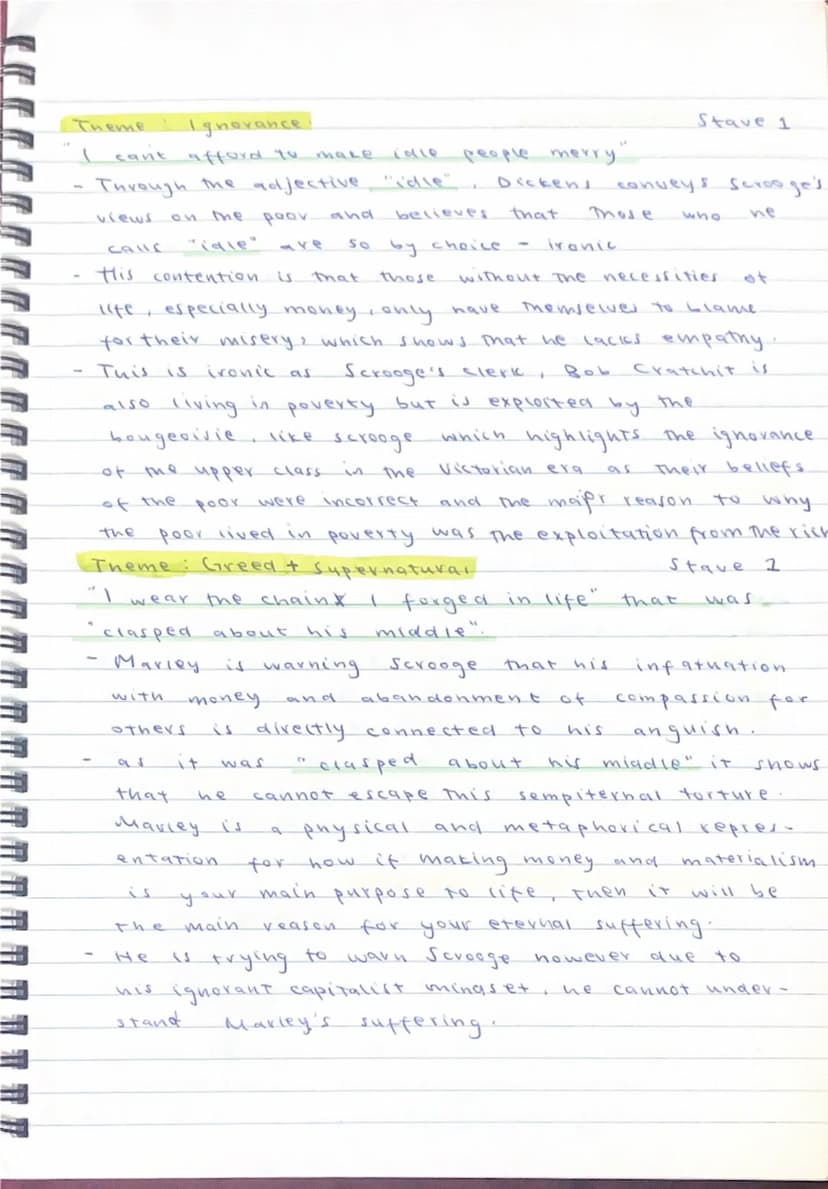 Theme : Ignorance. Stave 1
"I can't afford to make idle people merry"
- Through the adjective "idle", Dickens conveys Scrooge's
views on the poor and believes that those who he
calls "idle" are so by choice - ironic
- His contention is that those without the necessities of
life, especially money, only have themselves to blame
for their misery, which shows that he lacks empathy.
- This is ironic as Scrooge's clerk, Bob Cratchit is
also living in poverty but is exploited by the
bougeoisie, like scrooge which highlights the ignorance
of the upper class in the Victorian era as their beliefs
of the poor were incorrect and the major reason to why
the poor lived in poverty was the exploitation from the rich
Theme : Greed + Supernatural Stave 1
"I wear the chain I forged in life" that was
"clasped about his middle".
- Marley is warning Scrooge that his infatuation
with money and abandonment of compassion for
others is directly connected to his anguish.
- as it was "clasped about his middle" it shows
that he cannot escape this sempiternal torture.
Marley is a physical and metaphorical repres-
entation for how if making money and materialism
is your main purpose to life, then it will be
the main reason for your eternal suffering.
- He is trying to warn Scrooge however due to
his ignorant capitalist mindset, he cannot under-
stand Marley's suffering.